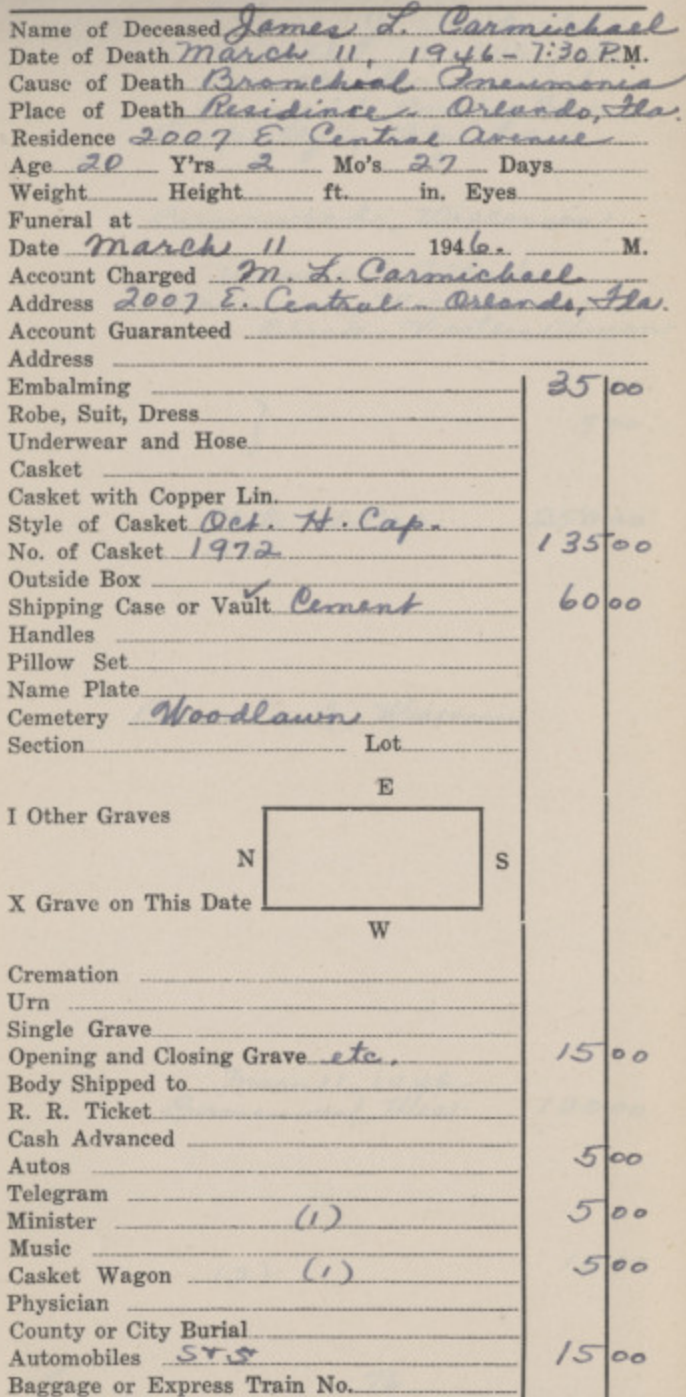 Name of Deceased James L. Carmichael
Date of Death March 11, 1946 - 7:30 P.M.
Cause of Death Bronchoal Pneumonia
Place of Death Residince - Orlando, Fla.
Residence 2007 E. Central Avenue
Age 20 Y'rs 2 Mo's 27 Days
Weight Height ft. in. Eyes
Funeral at
Date March 11 1946. M.
Account Charged M. L. Carmichael
Address 2007 E. Central - Orlando, Fla.
Account Guaranteed
Address
Embalming 35 00
Robe, Suit, Dress
Underwear and Hose
Casket
Casket with Copper Lin.
Style of Casket Oct. H. Cap.
No. of Casket 1972 135 00
Outside Box
Shipping Case or Vault ✓ Cement 60 00
Handles
Pillow Set
Name Plate
Cemetery Woodlawn
Section Lot
E
I Other Graves
N S
X Grave on This Date
W
Cremation
Urn
Single Grave
Opening and Closing Grave etc. 15 00
Body Shipped to
R. R. Ticket
Cash Advanced
Autos 5 00
Telegram
Minister (1) 5 00
Music
Casket Wagon (1) 5 00
Physician
County or City Burial
Automobiles 5 + 5 15 00
Baggage or Express Train No.